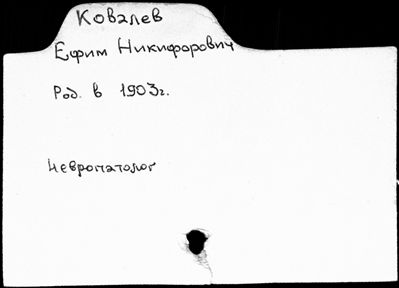 Ковалев
Ефим Никифорович
Род. в 1903г.
Невропатолог